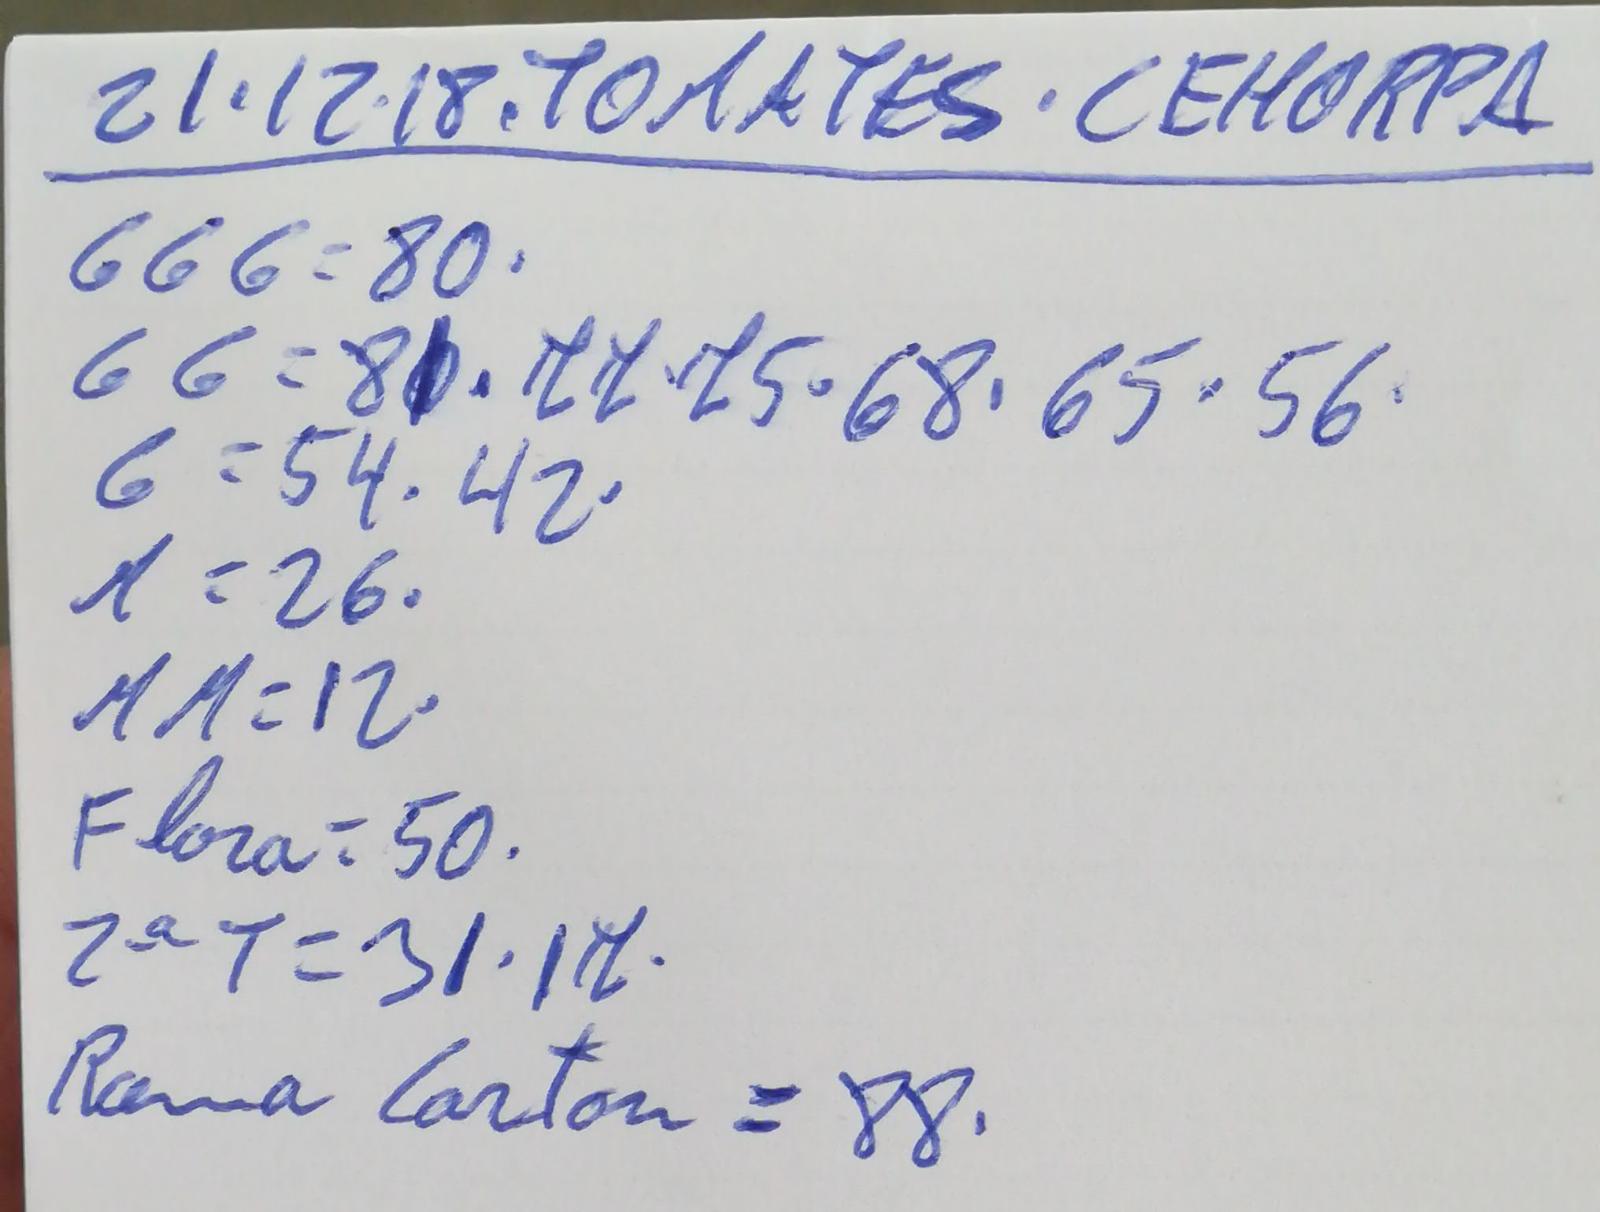 21.12.18. TOMATES. CEHORPA
GGG = 80.
GG = 81. 77. 75. 68. 65. 56.
G = 54. 42.
M = 26.
MM = 12.
Flora = 50.
2ª T = 31. 17.
Rama Carton = 88.